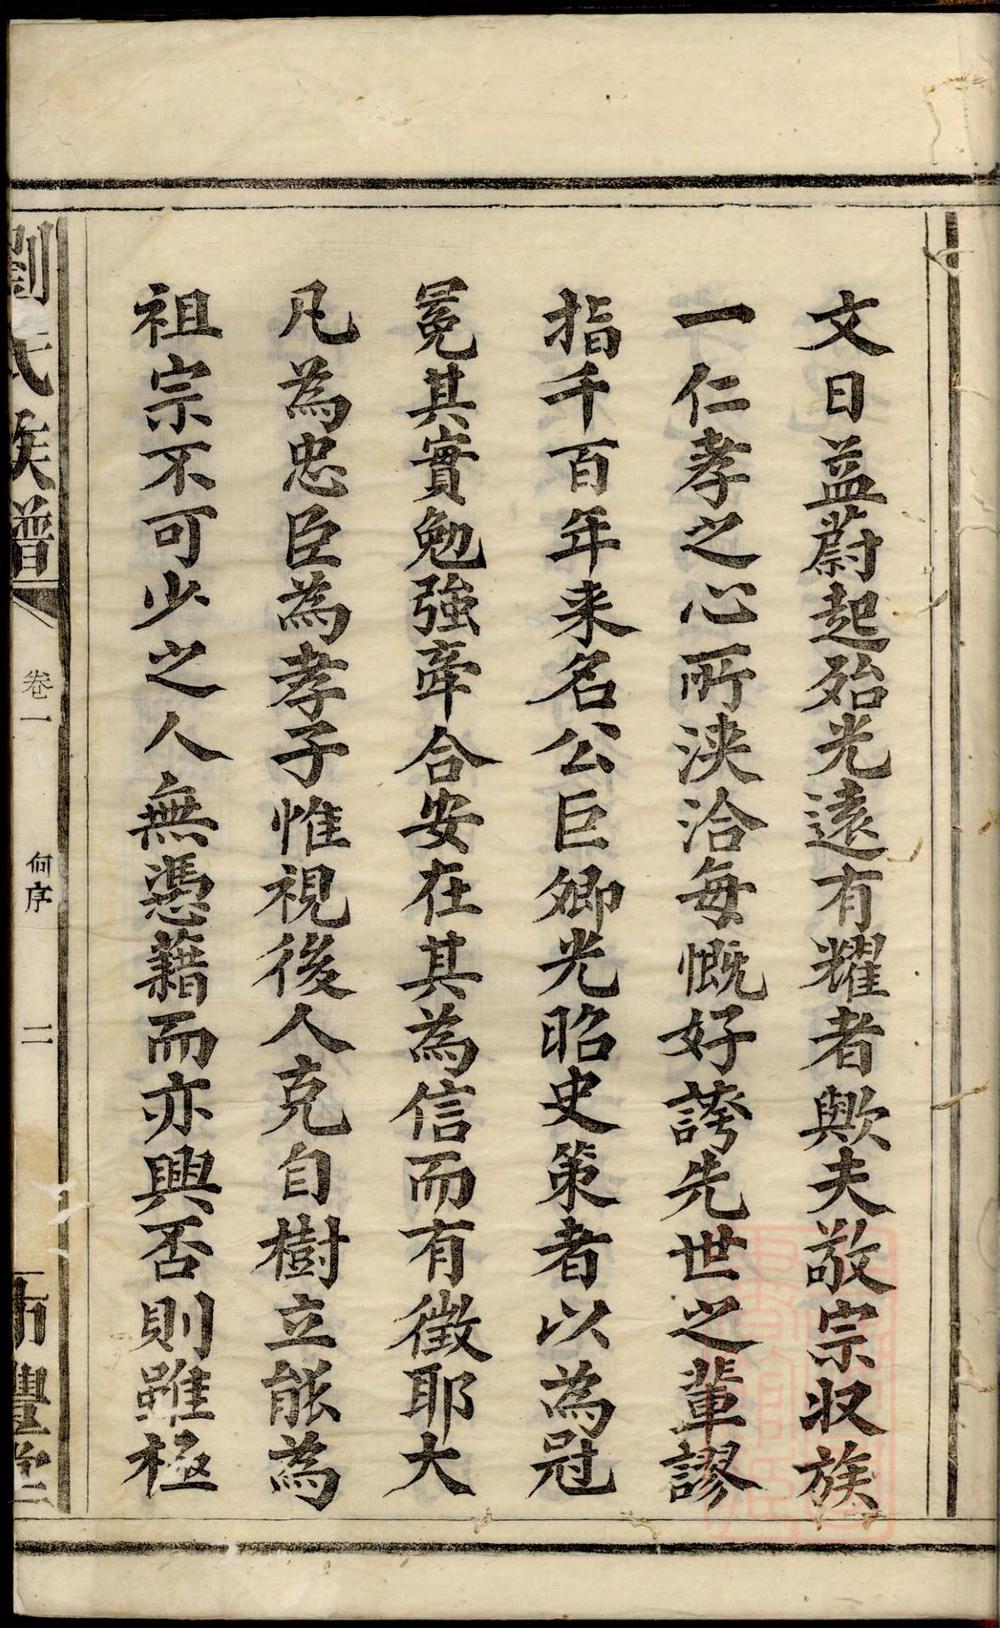 文日益蔚起殆光遠有耀者歟夫敬宗収族
一仁孝之心所浹洽每慨好誇先世之輩謬
指千百年来名公巨卿光昭史策者以為冠
冕其實勉強牽合安在其為信而有徵耶大
凡為忠臣為孝子惟視後人克自樹立能為
祖宗不可少之人無憑藉而亦興否則雖極
劉氏族譜
卷一
何序
二